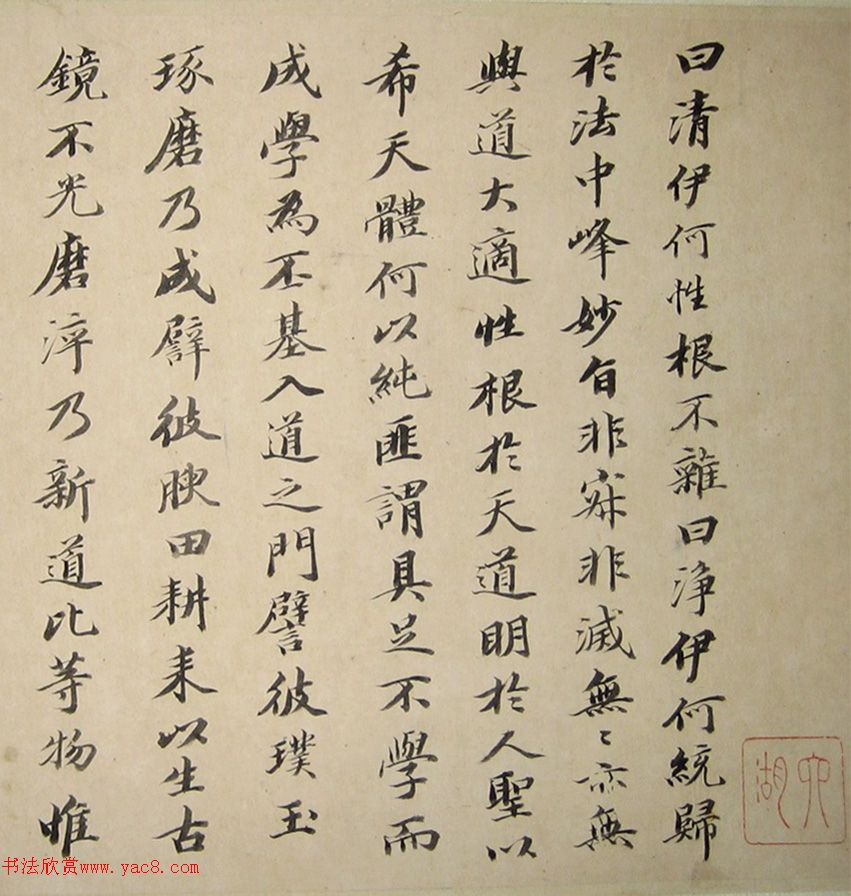 曰清伊何性根不雜曰淨伊何統歸
於法中峰妙旨非寂非滅無〻亦無
與道大適性根於天道明於人聖以
希天體何以純匪謂具足不學而
成學為丕基入道之門譬彼璞玉
琢磨乃成譬彼腴田耕耒以生古
鏡不光磨淬乃新道比等物惟
湖
书法欣赏www.yac8.com